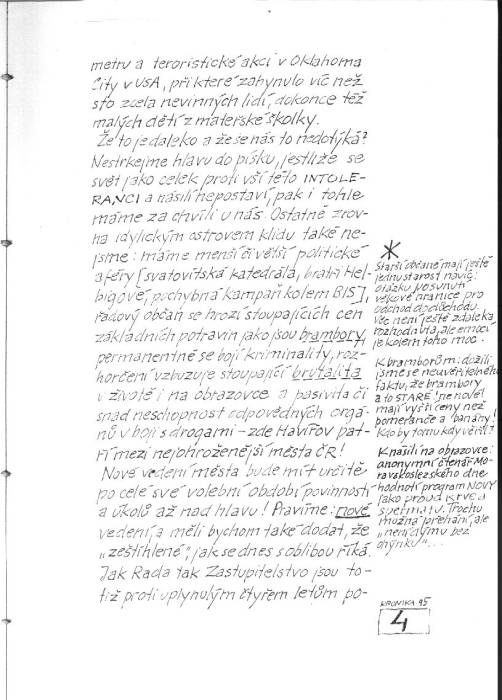 metru a teroristické akci v Oklahoma
City v USA, při které zahynulo víc než
sto zcela nevinných lidí, dokonce též
malých dětí z mateřské školky.
Že to je daleko a že se nás to nedotýká?
Nestrkejme hlavu do písku, jestliže se
svět jako celek proti vší této INTOLE-
RANCI a násilí nepostaví, pak i tohle
máme za chvíli u nás. Ostatně zrov-
na idylickým ostrovem klidu také ne-
jsme: máme menší či větší politické
aféry [svatovítská katedrála, bratři Hel-
bigové, pochybná kampaň kolem BIS],
řadový občan se hrozí stoupajících cen
základních potravin jako jsou brambory,
permanentně se bojí kriminality, roz-
hořčení vzbuzuje stoupající brutalita
v životě i na obrazovce a pasivita či
snad neschopnost odpovědných orgá-
nů v boji s drogami – zde Havířov pat-
ří mezi nejohroženější města ČR!
Nové vedení města bude mít určitě
po celé své volební období povinností
a úkolů až nad hlavu! Pravíme: nové
vedení, a měli bychom také dodat, že
„zeštíhlené", jak se dnes s oblibou říká.
Jak Rada tak Zastupitelstvo jsou to-
tiž proti uplynulým čtyřem letům po-
*
Starší občané mají ještě
jednu starost navíc:
otázku posunutí
věkové hranice pro
odchod do důchodu.
Věc není ještě zdaleka
rozhodnuta, ale emocí
je kolem toho moc.
K bramborům: dožili
jsme se neuvěřitelného
faktu, že brambory
a to STARÉ! ne nové!
mají vyšší ceny než
pomeranče a banány!
Kdo by tomu kdy věřil?
K násilí na obrazovce:
anonymní čtenář Mo-
ravskoslezského dne
hodnotí program NOVY
jako proud krve a
spermatu. Trochu
možná přehání, ale
„není dýmu bez
ohýnku"...
KRONIKA 95
4